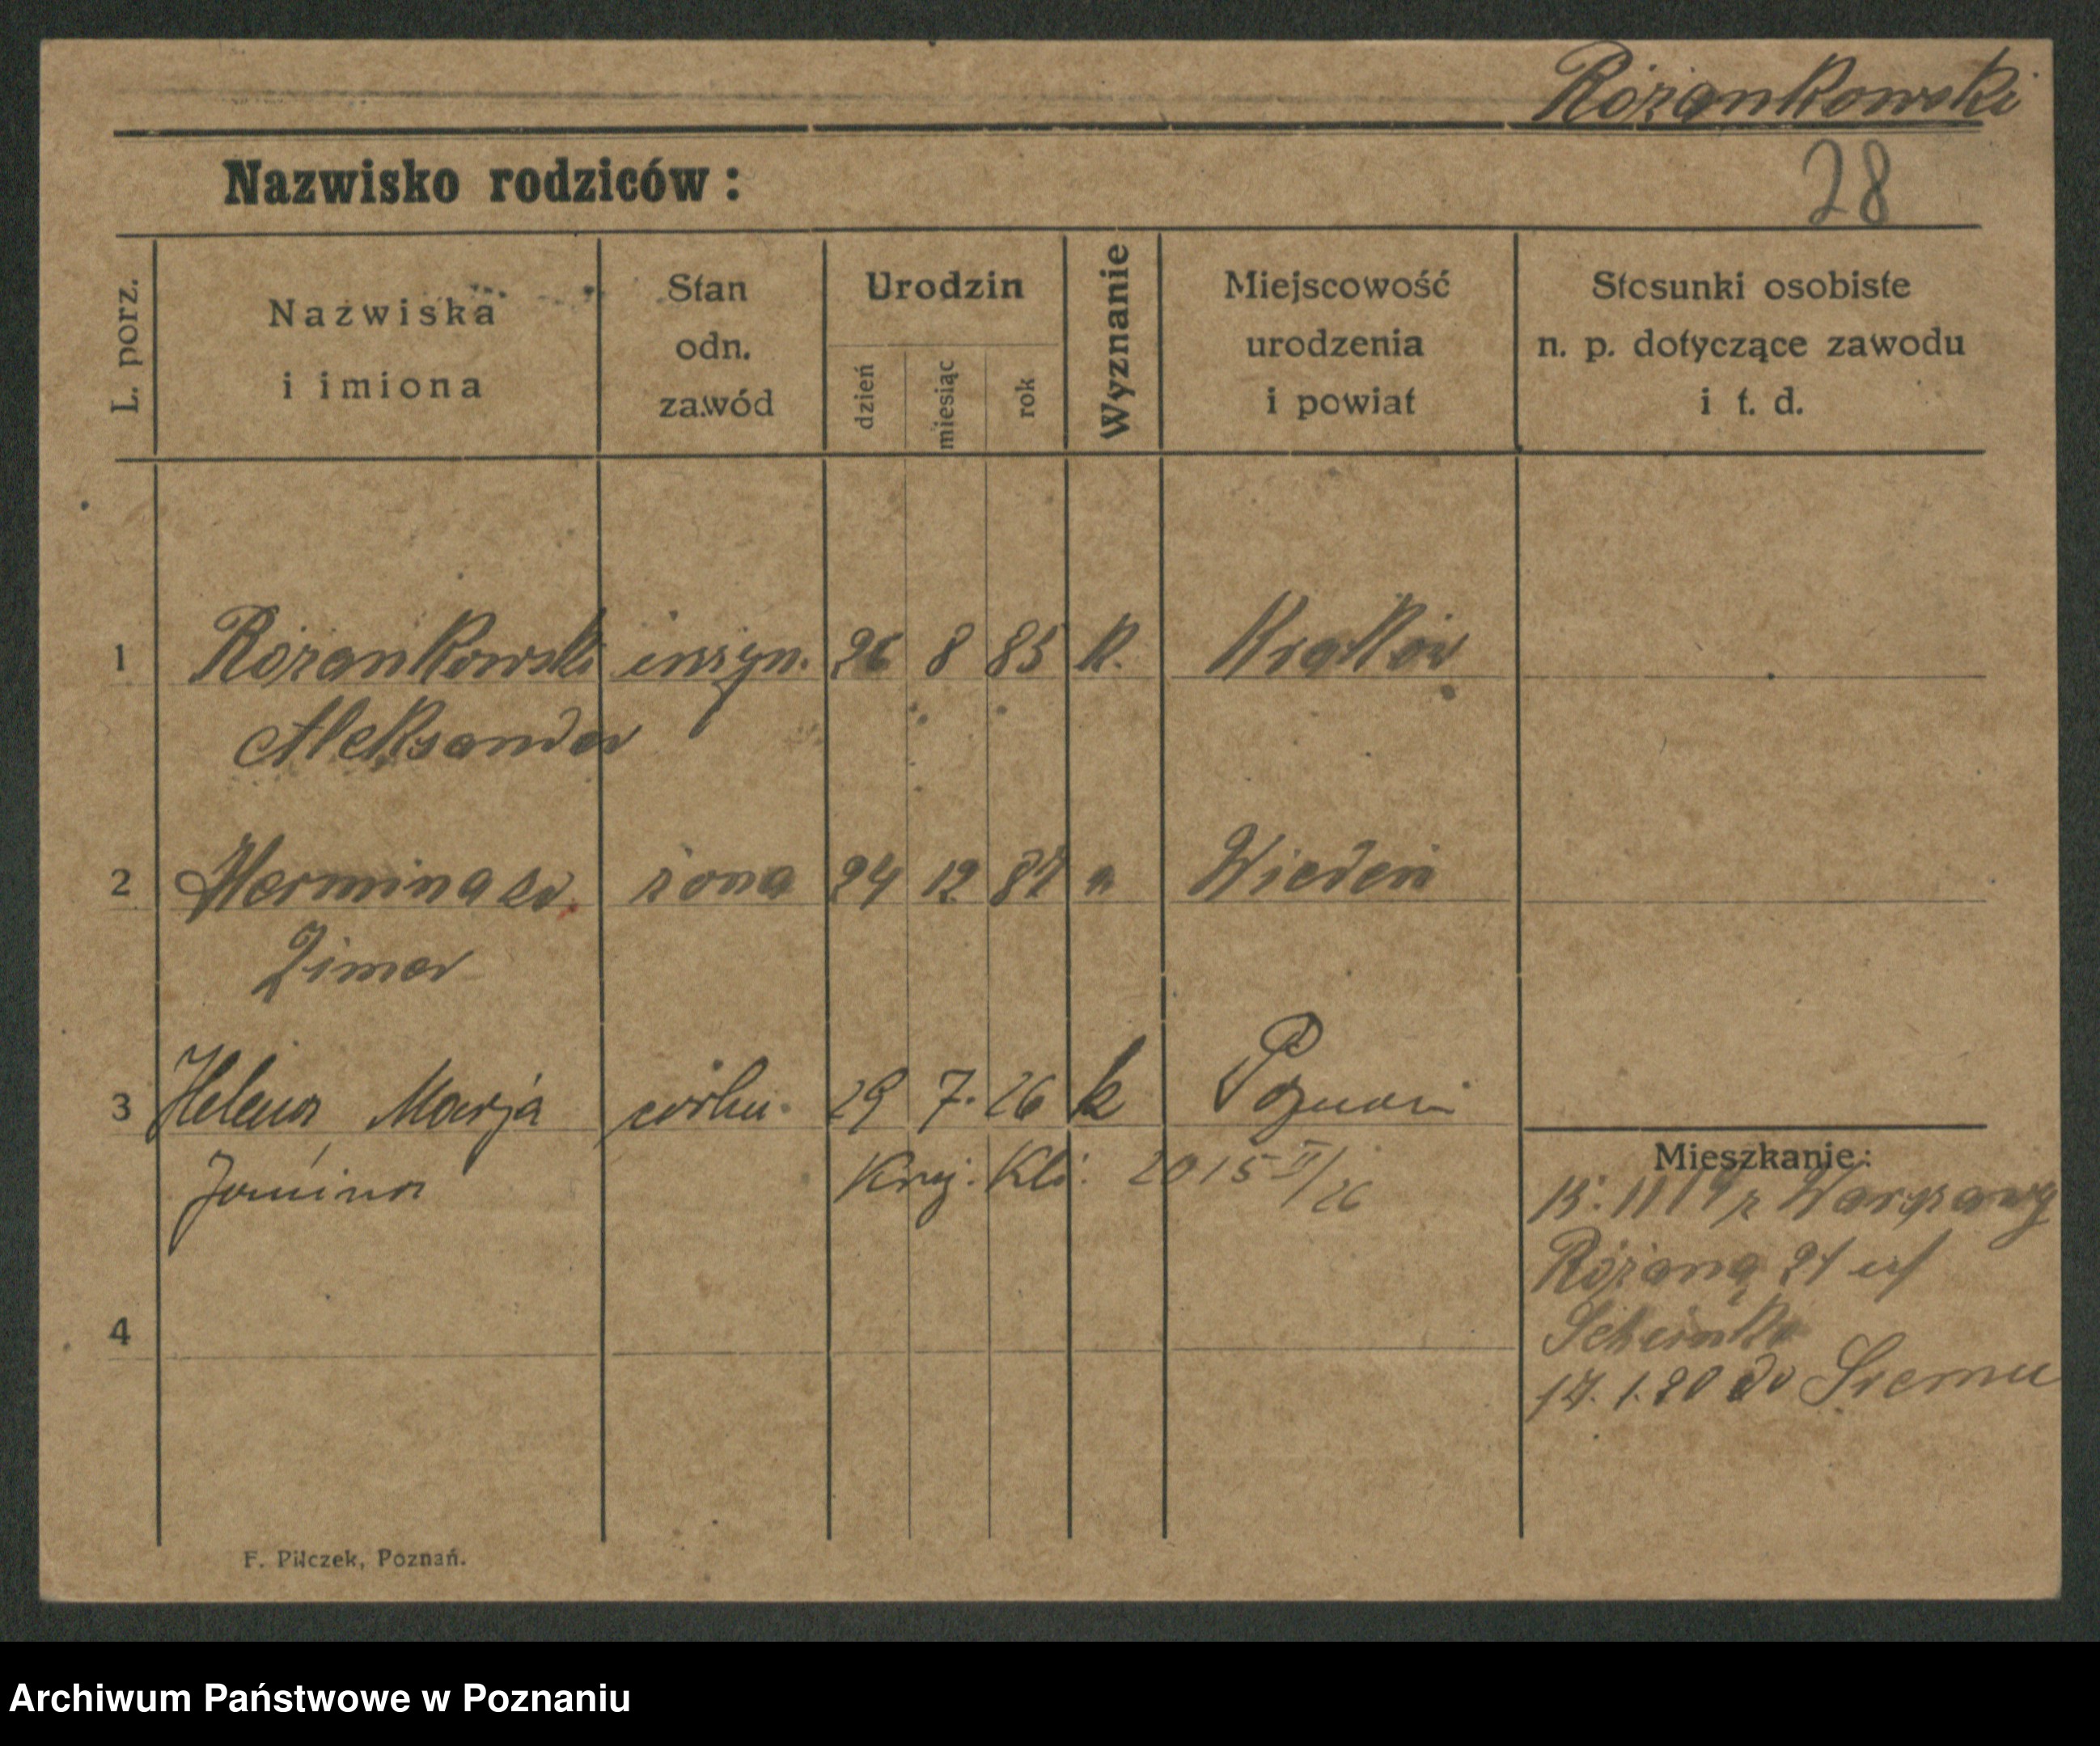 Różankowski
28
Nazwisko rodziców:
L. porz.
Nazwiska
i imiona
Stan
odn.
zawód
Urodzin
dzień
miesiąc
rok
Wyznanie
Miejscowość
urodzenia
i powiat
Stosunki osobiste
n. p. dotyczące zawodu
i t. d.
1 Różankowski inżyn. 26 8 85 k. Kraków
Aleksander
2 Hermina zd. żona 24 12 87 " Wiedeń
Zimer
3 Helena Marja córka. 29 7. 26 k Poznań
Janina
2015 II/26
Mieszkanie:
15. 11 19 z Warszawy
Różana 21
17. 1. 20 do Śremu
4
F. Pilczek, Poznań.
Archiwum Państwowe w Poznaniu